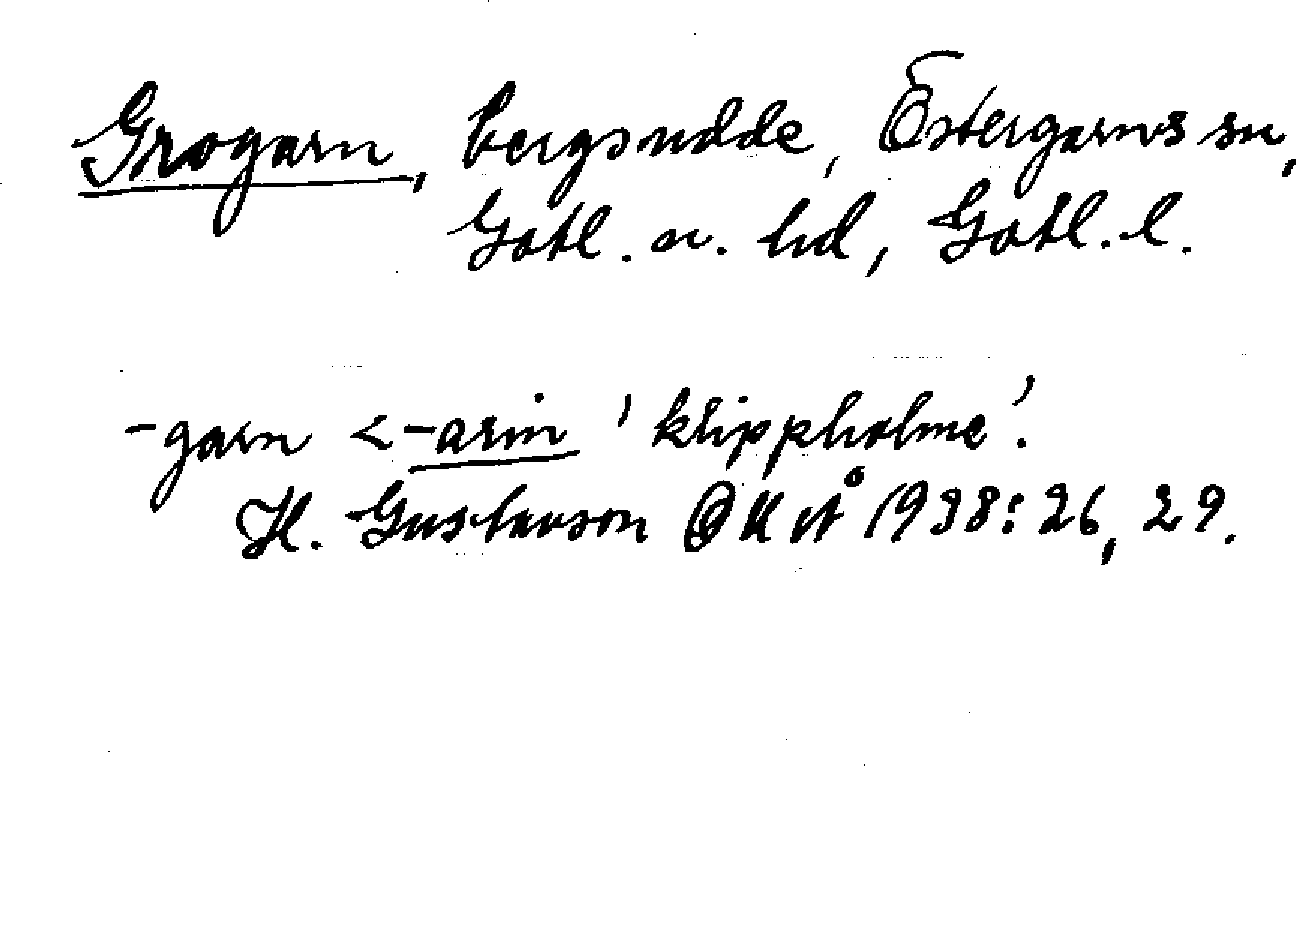 Grogarn, bergsudde, Östergarns sn,
Gotl. n. hd, Gotl. l.
-garn <-arin 'klippholme'.
H. Gustavson 1938: 26, 29.